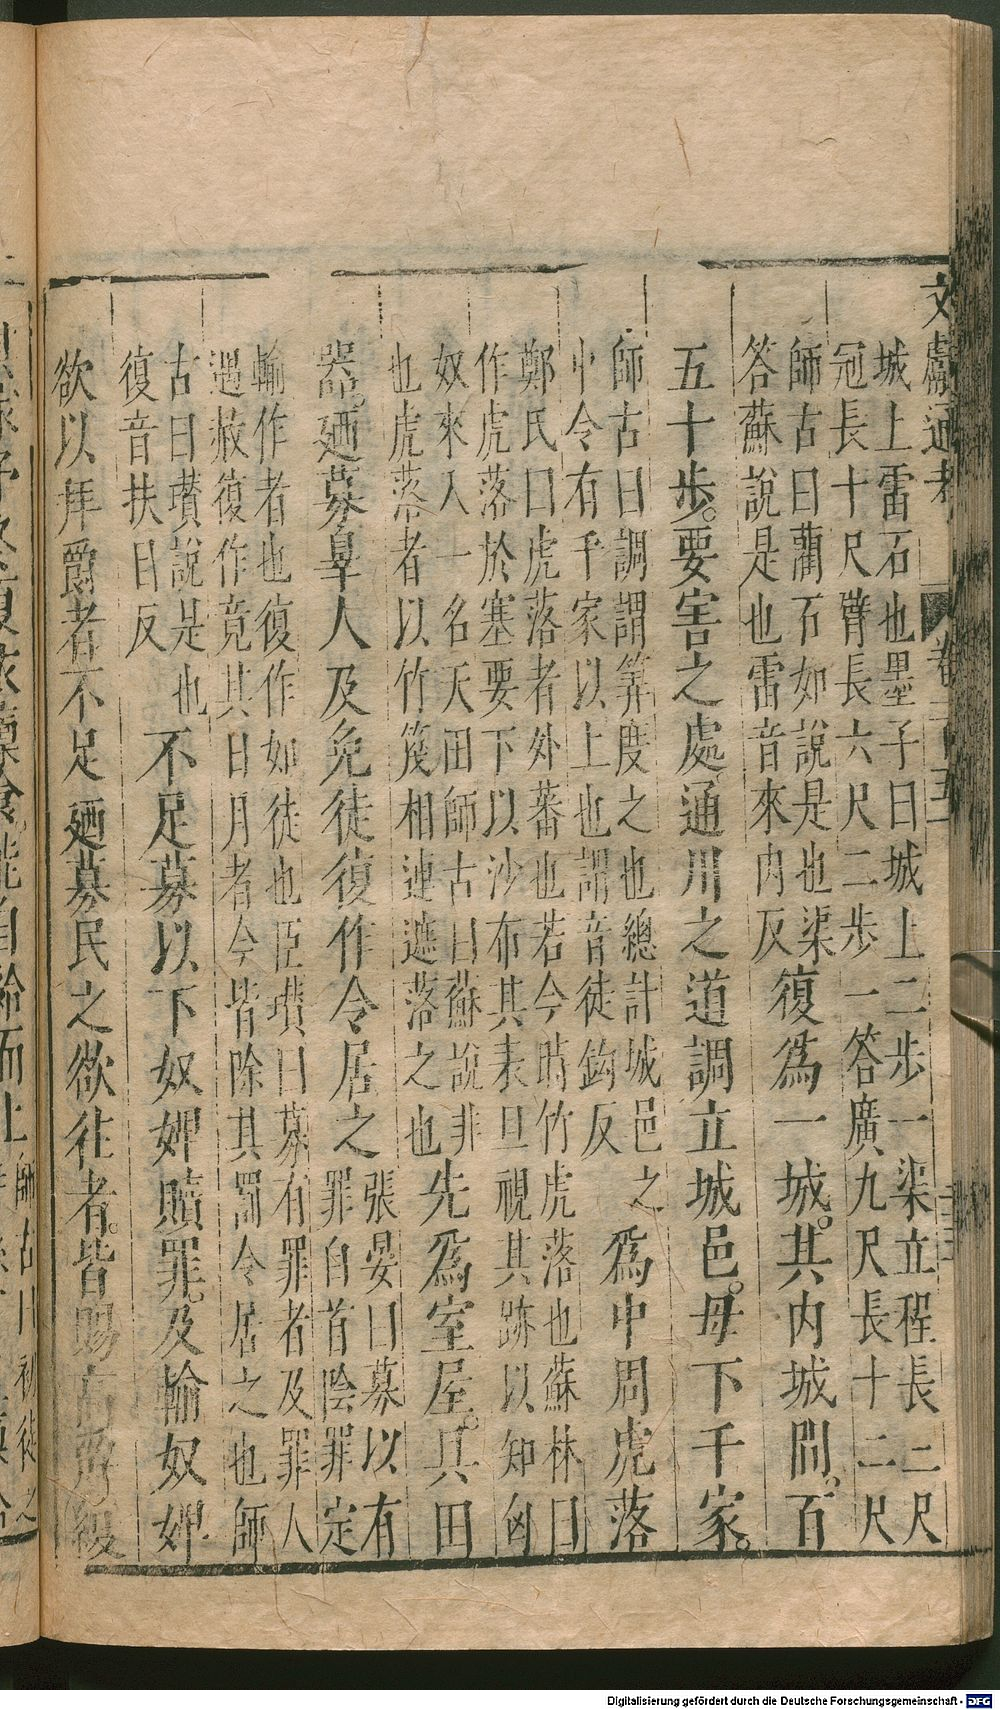 文獻通考
城上雷石也墨子曰城上二步一渠立程長二尺
冠長十尺臂長六尺二步一答廣九尺長十二尺
師古曰藺石如說是也渠
答蘇說是也雷音來內反
復爲一城。其內城間。百
五十步。要害之處通川之道調立城邑。毋下千家。
師古曰調謂筭度之也總計城邑之
中令有千家以上也調音徒鈞反
爲中周虎落
鄭氏曰虎落者外蕃也若今時竹虎落也蘇林曰
作虎落於塞要下以沙布其表旦視其跡以知匈
奴來入一名天田師古曰蘇說非
也虎落者以竹篾相連遮落之也
先爲室屋。具田
器。廼募辠人及免徒復作令居之
張晏曰募以有
罪自首除罪定
輸作者也復作如徒也臣瓚曰募有罪者及罪人
遇赦復作竟其日月者今皆除其罰令居之也師
古曰瓚說是也
復音扶目反
不足募以下奴婢贖罪。及輸奴婢
欲以拜爵者不足廼募民之欲往者。皆賜高爵復
Digitalisierung gefördert durch die Deutsche Forschungsgemeinschaft - DFG